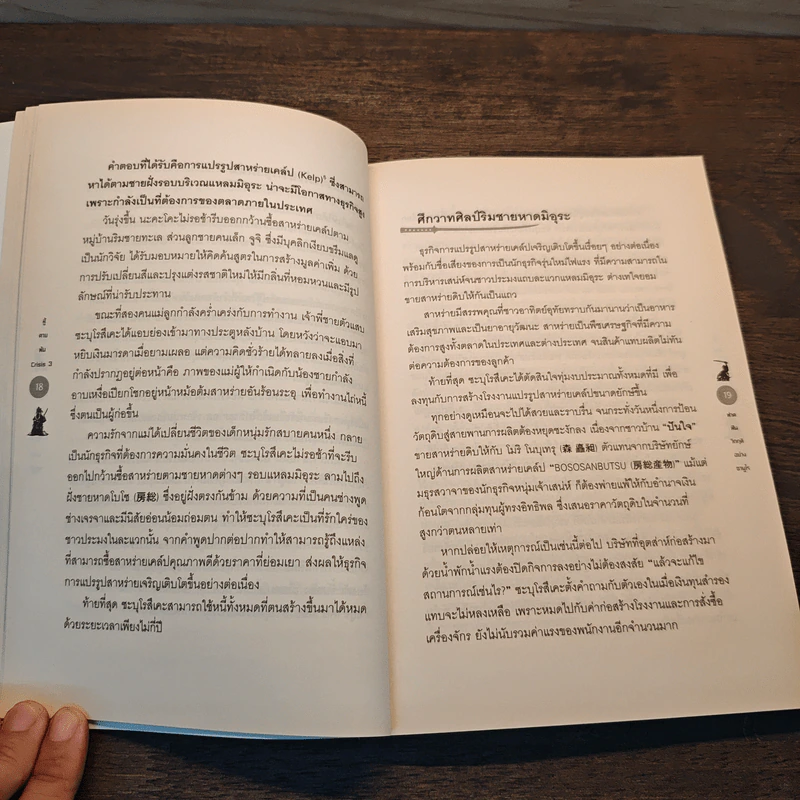 คำตอบที่ได้รับคือการแปรรูปสาหร่ายเคล์ป (Kelp)⁵ ซึ่งสามารถ
หาได้ตามชายฝั่งรอบบริเวณแหลมมิอุระ น่าจะมีโอกาสทางธุรกิจสูง
เพราะกำลังเป็นที่ต้องการของตลาดภายในประเทศ
วันรุ่งขึ้น นะคะโคะไม่รอช้ารีบออกกว้านซื้อสาหร่ายเคล์ปตาม
หมู่บ้านริมชายทะเล ส่วนลูกชายคนเล็ก จูจิ ซึ่งมีบุคลิกเงียบขรึมแลดู
เป็นนักวิจัย ได้รับมอบหมายให้คิดค้นสูตรในการสร้างมูลค่าเพิ่ม ด้วย
การปรับเปลี่ยนสีและปรุงแต่งรสชาติใหม่ให้มีกลิ่นที่หอมหวนและมีรูป
ลักษณ์ที่น่ารับประทาน
ขณะที่สองคนแม่ลูกกำลังคร่ำเคร่งกับการทำงาน เจ้าพี่ชายตัวแสบ
ซะบุโรสึเคะได้แอบย่องเข้ามาทางประตูหลังบ้าน โดยหวังว่าจะแอบมา
หยิบเงินมารดาเมื่อยามเผลอ แต่ความคิดชั่วร้ายได้ทลายลงเมื่อสิ่งที่
กำลังปรากฏอยู่ต่อหน้าคือ ภาพของแม่ผู้ให้กำเนิดกับน้องชายกำลัง
อาบเหงื่อเปียกโชกอยู่หน้าหม้อต้มสาหร่ายอันร้อนระอุ เพื่อทำงานไถ่หนี้
ซึ่งตนเป็นผู้ก่อขึ้น
ความรักจากแม่ได้เปลี่ยนชีวิตของเด็กหนุ่มรักสบายคนหนึ่ง กลาย
เป็นนักธุรกิจที่ต้องการความมั่นคงในชีวิต ซะบุโรสึเคะไม่รอช้าที่จะรีบ
ออกไปกว้านซื้อสาหร่ายตามชายหาดต่างๆ รอบแหลมมิอุระ ลามไปถึง
ฝั่งชายหาดโบโซ (房総) ซึ่งอยู่ฝั่งตรงกันข้าม ด้วยความที่เป็นคนช่างพูด
ช่างเจรจาและมีนิสัยอ่อนน้อมถ่อมตน ทำให้ซะบุโรสึเคะเป็นที่รักใคร่ของ
ชาวประมงในละแวกนั้น จากคำพูดปากต่อปากทำให้สามารถรู้ถึงแหล่ง
ที่สามารถซื้อสาหร่ายเคล์ปคุณภาพดีด้วยราคาที่ย่อมเยา ส่งผลให้ธุรกิจ
การแปรรูปสาหร่ายเจริญเติบโตขึ้นอย่างต่อเนื่อง
ท้ายที่สุด ซะบุโรสึเคะสามารถใช้หนี้ทั้งหมดที่ตนสร้างขึ้นมาได้หมด
ด้วยระยะเวลาเพียงไม่กี่ปี
Crisis 3
18
ศึกวาทศิลป์ริมชายหาดมิอุระ
ธุรกิจการแปรรูปสาหร่ายเคล์ปเจริญเติบโตขึ้นเรื่อยๆ อย่างต่อเนื่อง
พร้อมกับชื่อเสียงของการเป็นนักธุรกิจรุ่นใหม่ไฟแรง ที่มีความสามารถใน
การบริหารเสน่ห์จนชาวประมงแถบละแวกแหลมมิอุระ ต่างเทใจยอม
ขายสาหร่ายดิบให้กันเป็นแถว
สาหร่ายมีสรรพคุณที่ชาวอาทิตย์อุทัยทราบกันมานานว่าเป็นอาหาร
เสริมสุขภาพและเป็นยาอายุวัฒนะ สาหร่ายเป็นพืชเศรษฐกิจที่มีความ
ต้องการสูงทั้งตลาดในประเทศและต่างประเทศ จนสินค้าแทบผลิตไม่ทัน
ต่อความต้องการของลูกค้า
ท้ายที่สุด ซะบุโรสึเคะได้ตัดสินใจทุ่มงบประมาณทั้งหมดที่มี เพื่อ
ลงทุนกับการสร้างโรงงานแปรรูปสาหร่ายเคล์ปขนาดยักษ์ขึ้น
ทุกอย่างดูเหมือนจะไปได้สวยและราบรื่น จนกระทั่งวันหนึ่งการป้อน
วัตถุดิบสู่สายพานการผลิตต้องหยุดชะงักลง เนื่องจากชาวบ้าน “ปันใจ”
ขายสาหร่ายดิบให้กับ โมริ โนบุเทรุ (森 矗昶) ตัวแทนจากบริษัทยักษ์
ใหญ่ด้านการผลิตสาหร่ายเคล์ป “BOSOSANBUTSU (房総産物)” แม้แต่
มธุรสวาจาของนักธุรกิจหนุ่มเจ้าเสน่ห์ ก็ต้องพ่ายแพ้ให้กับอำนาจเงิน
ก้อนโตจากกลุ่มทุนผู้ทรงอิทธิพล ซึ่งเสนอราคาวัตถุดิบในจำนวนที่
สูงกว่าตนหลายเท่า
หากปล่อยให้เหตุการณ์เป็นเช่นนี้ต่อไป บริษัทที่อุตส่าห์ก่อสร้างมา
ด้วยน้ำพักน้ำแรงต้องปิดกิจการลงอย่างไม่ต้องสงสัย “แล้วจะแก้ไข
สถานการณ์เช่นไร?” ซะบุโรสึเคะตั้งคำถามกับตัวเองในเมื่อเงินทุนสำรอง
แทบจะไม่หลงเหลือ เพราะหมดไปกับค่าก่อสร้างโรงงานและการสั่งซื้อ
เครื่องจักร ยังไม่นับรวมค่าแรงของพนักงานอีกจำนวนมาก
19